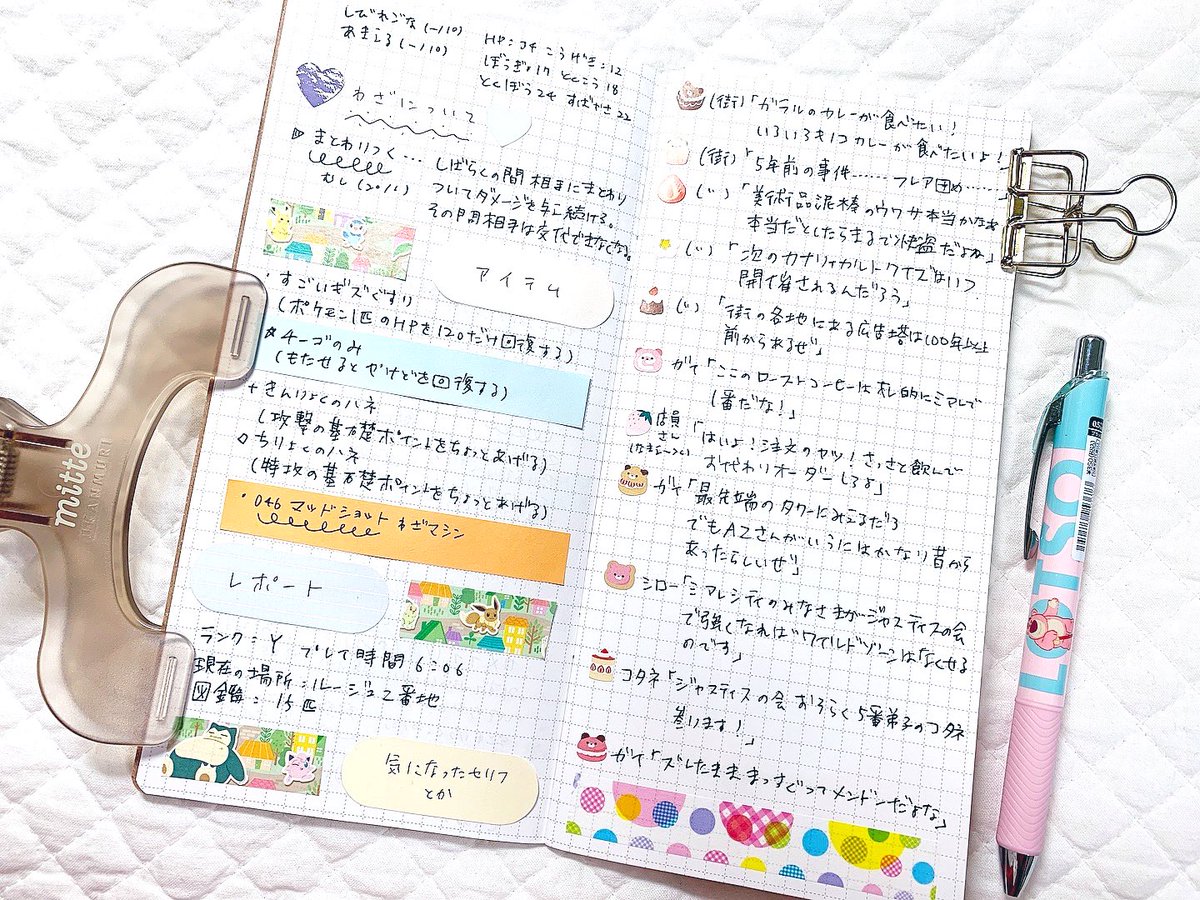 しびれごな(ー/10)
あまえる(ー/10)
HP:34 こうげき:12
ぼうぎょ17 とくこう18
とくぼう24 すばやさ22
わざについて
まとわりつく…
むし(20/
しばらくの間相手にまとわり
ついてダメージを与え続ける。
その間相手は交代できなくなる。
アイテム
・すごいキズぐすり
(ポケモン1匹のHPを120だけ回復する)
チーゴのみ
(もたせるとやけどを回復する)
+きんりょくのハネ
(攻撃の基礎ポイントをちょっとあげる)
◇ちりょくのハネ
(特攻の基礎ポイントをちょっとあげる)
・046 マッドショット わざマシン
レポート
ランク:Y プレイ時間6:06
現在の場所:ルージュ2番地
図鑑:15匹
気になったセリフ
とか
(街)「ガラルのカレーが食べたい!
いろいろキノコカレーが食べたいよ!
(街)「5年前の事件……フレア団め……
(じ)「美術品泥棒のウワサ本当かなぁ
本当だとしたらまるで怪盗だよね」
(じ)「次のカナリィカルトクイズはいつ
開催されるんだろう」
(じ)「街の各地にある広告塔は100年以上
前からあるぜ」
ガイ「ここのローストコーヒーは札的にミアレで
1番だな!」
店員さん
「はいよ!注文のヤツ!さっさと飲んで
おかわりオーダーしろよ」
ガイ「最先端のタワーにみえるだろ
でもAZさんがいうにはかなり昔から
あったらしいぜ」
シロー「ミアレシティのみなさまがジャスティスの会
で強くなればワイルドゾーンはなくせる
のです」
コタネ「ジャスティスの会 おそらく5番弟子のコタネ
参ります!」
ガイ「ズレたまままっすぐってメンドンだよな」
mitte
HIKANMURI
LOTSO